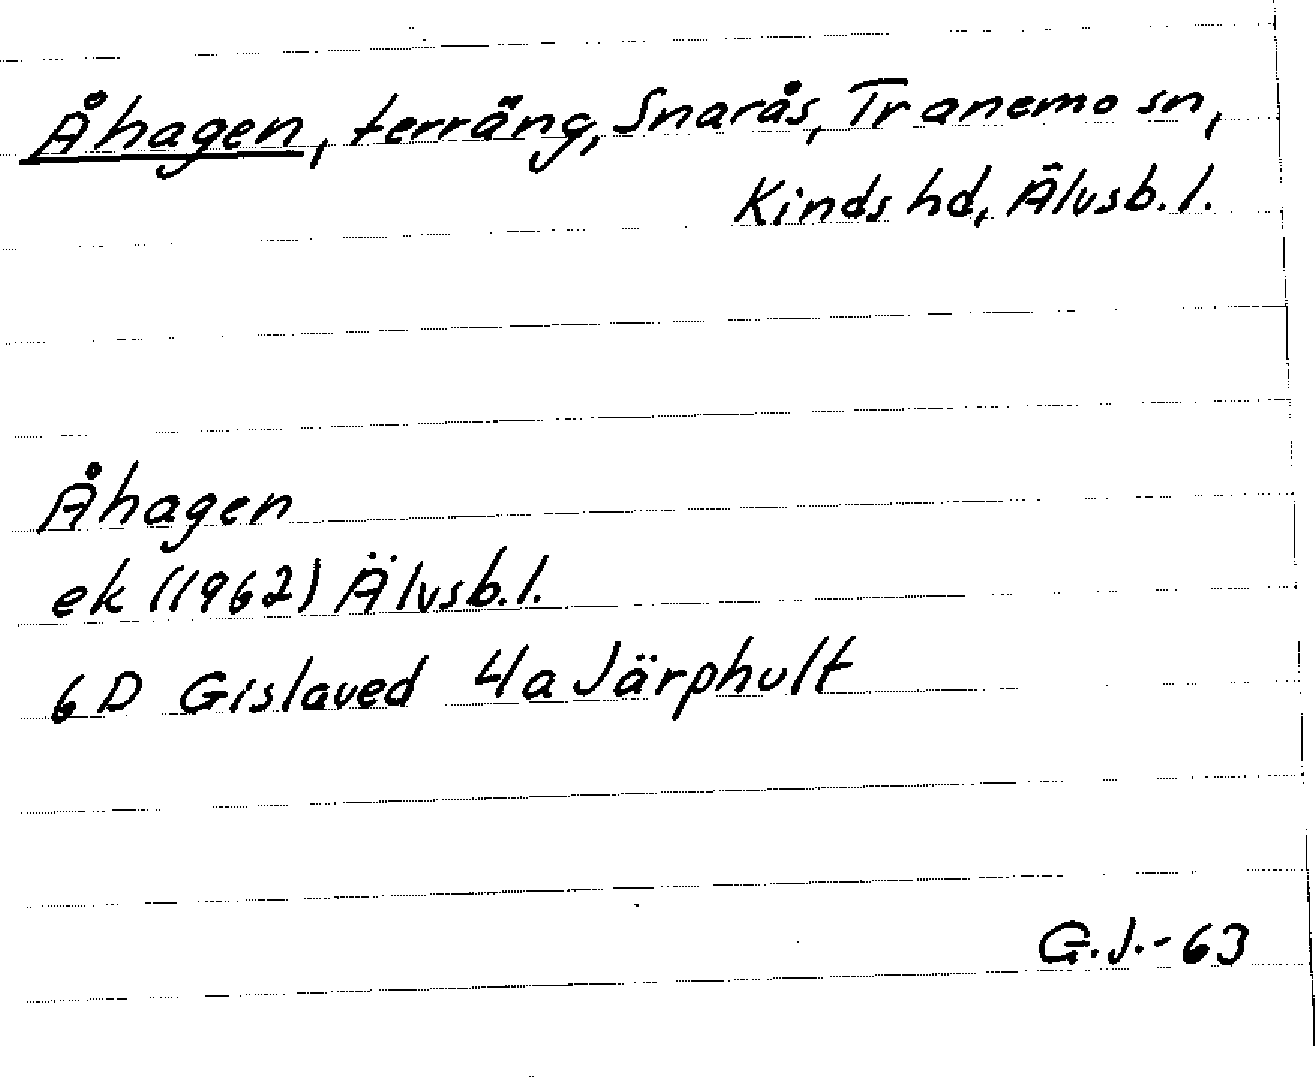 Åhagen, terräng, Snarås, Tranemo sn,
Kinds hd, Älvsb. l.
Åhagen
ek (1962) Älvsb. l.
6D Gislaved 4a Järphult
G.J.-63